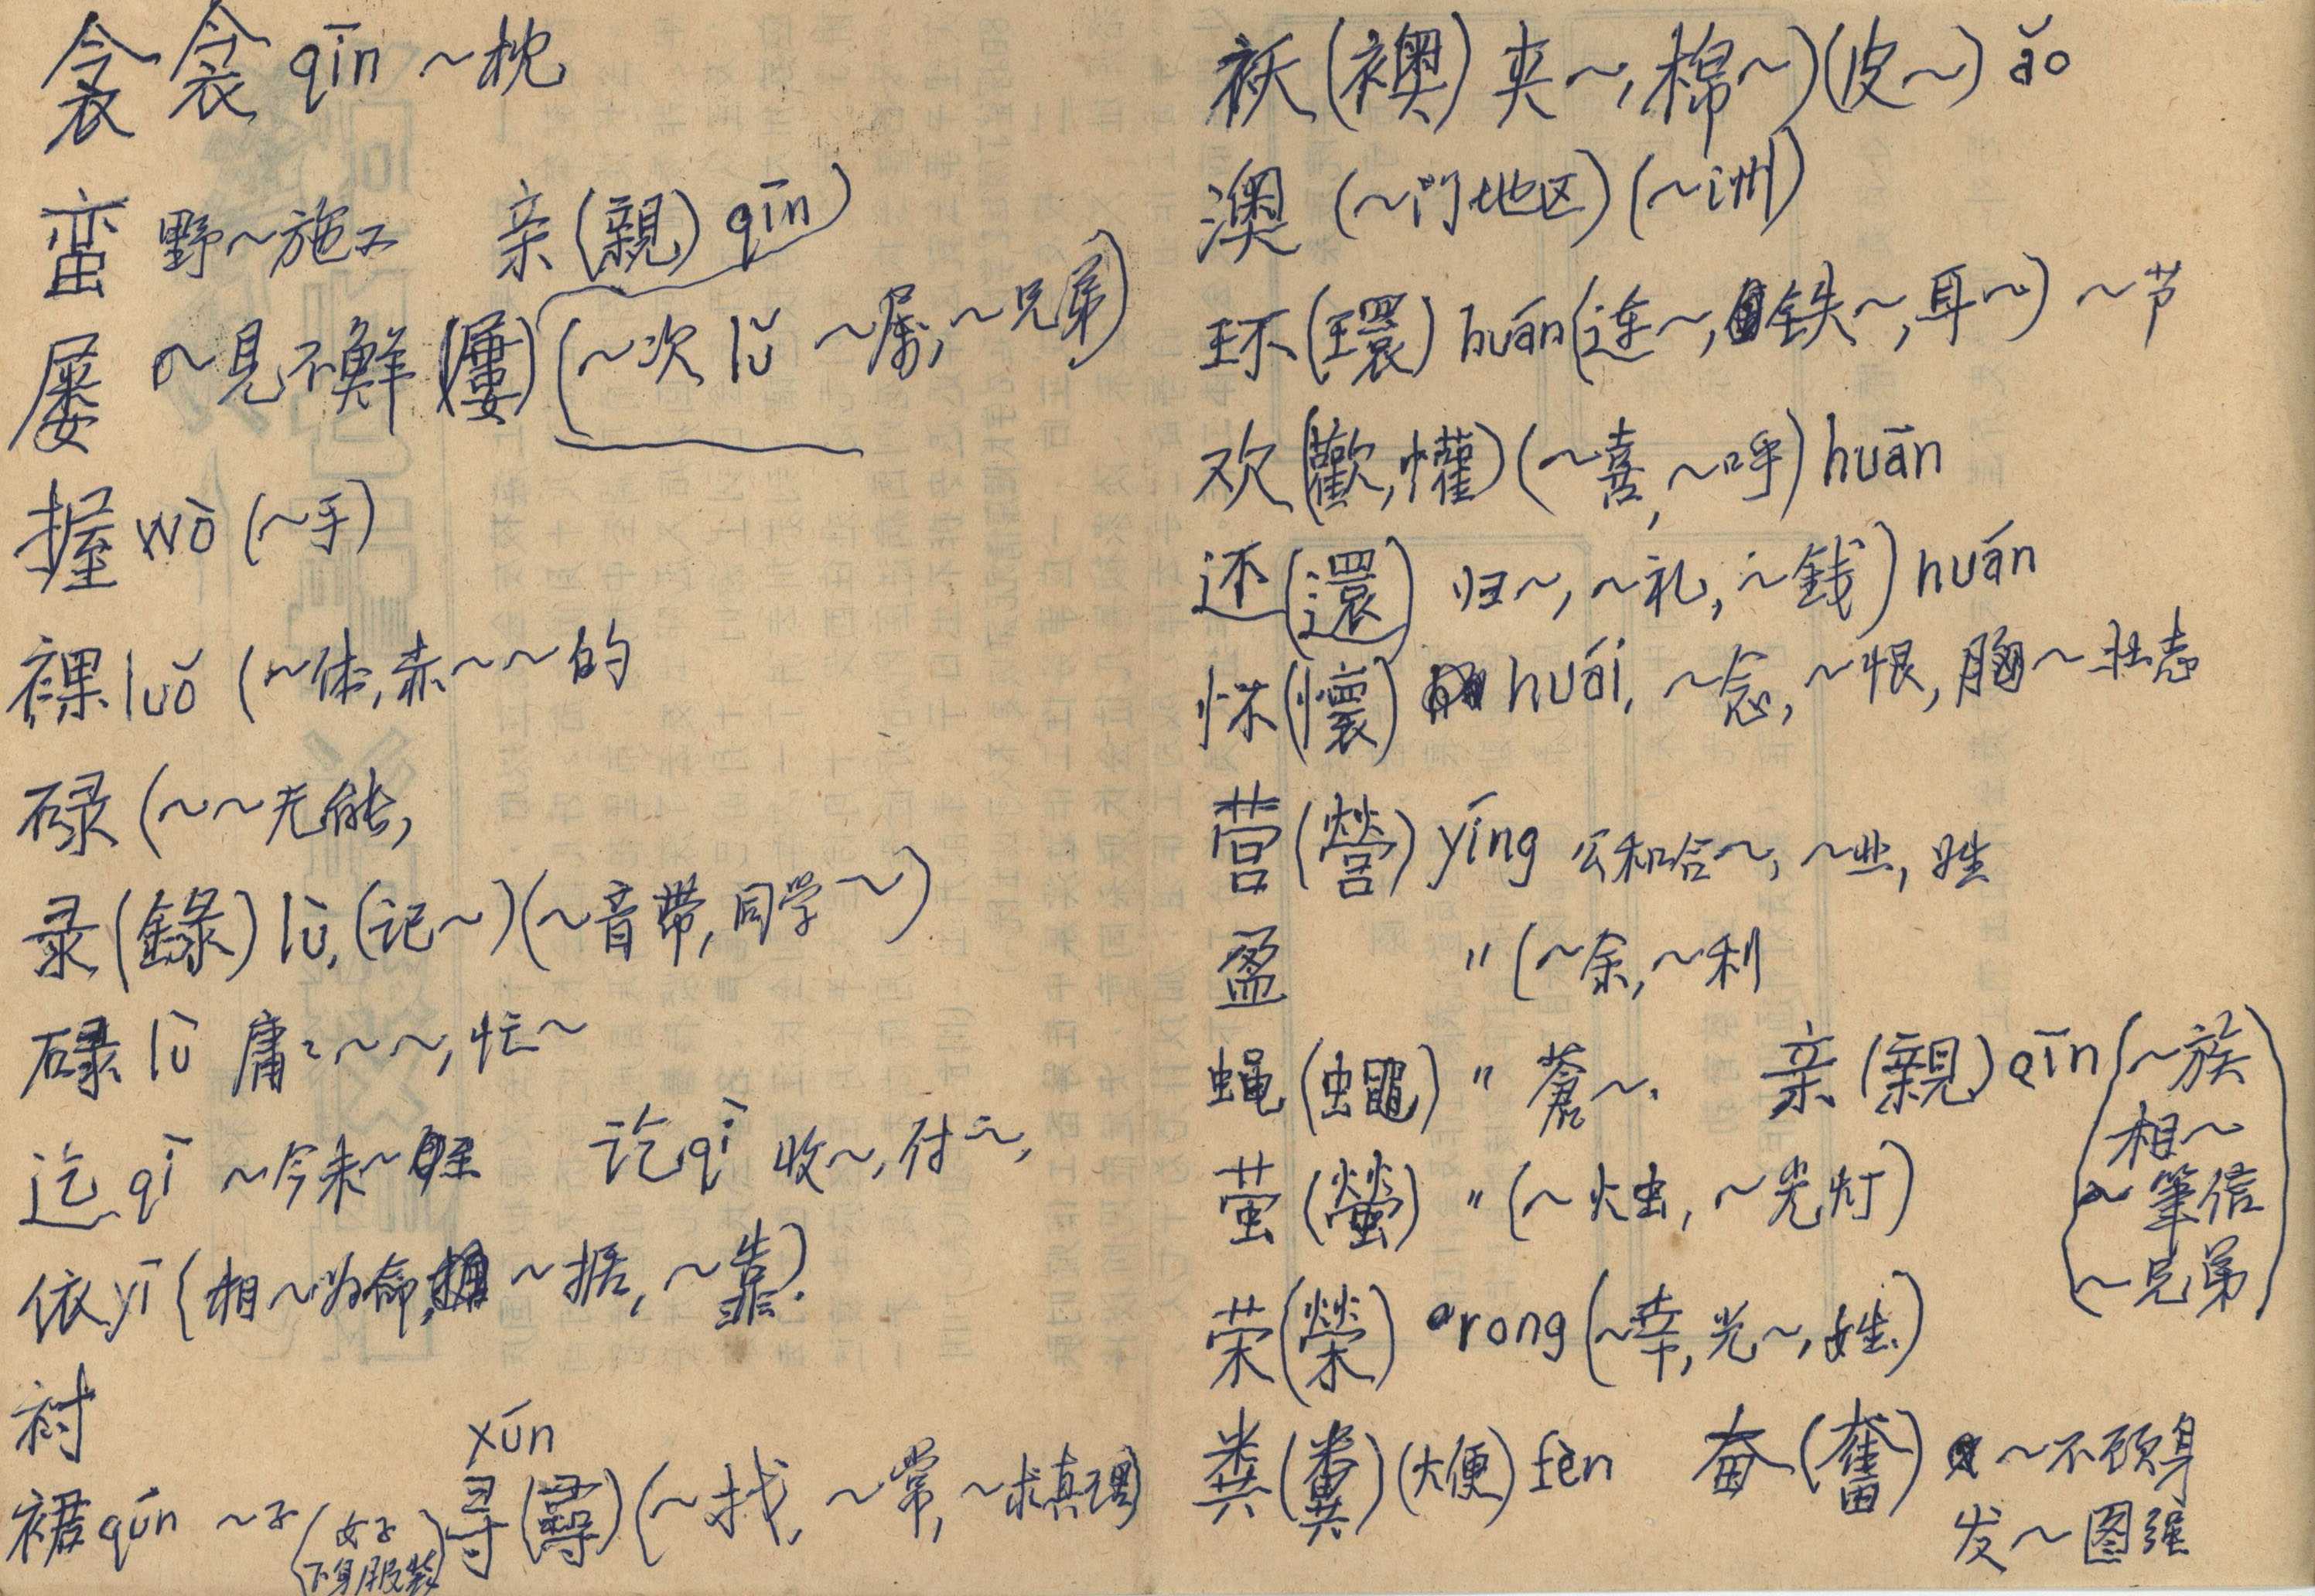 衾衾 qīn ~枕
蛮 野~施工 亲(親) qīn)
屡 ~见不鲜 (屢) (~次 lǚ ~属, ~兄弟)
握 wò (~手)
裸 luǒ (~体, 赤~~的
碌 (~~无能,
录(錄) lù, (记~)(~音帶, 同学~)
碌 lù 庸:~~, 忙~
迄 qì ~今未~ 讫 qì 收~, 付~,
依 yī (相~为命, ~据, ~靠).
衬
xún
裙 qún ~子 (女子下身服裝) 寻(尋) (~找, ~常, ~求真理)
袄(襖) 夹~, 棉~)(皮~) ǎo
澳 (~门地区)(~洲)
环(環) huán (连~, 铁~, 耳~) ~节
欢(歡, 懽)(~喜, ~呼) huān
还(還) 归~, ~礼, ~錢) huán
怀(懷) huái, ~念, ~恨, 胸~壮志
营(營) yíng 公私合~, ~业, 姓
盈 〃 (~余, ~利
蝇(蠅) 〃 蒼~. 亲(親) qīn (~族
相~
~筆信
~兄弟)
萤(螢) 〃 (~火虫, ~光灯)
荣(榮) rong (~幸, 光~, 姓)
粪(糞)(大便) fèn 奋(奮) ~不顾身
发~图强